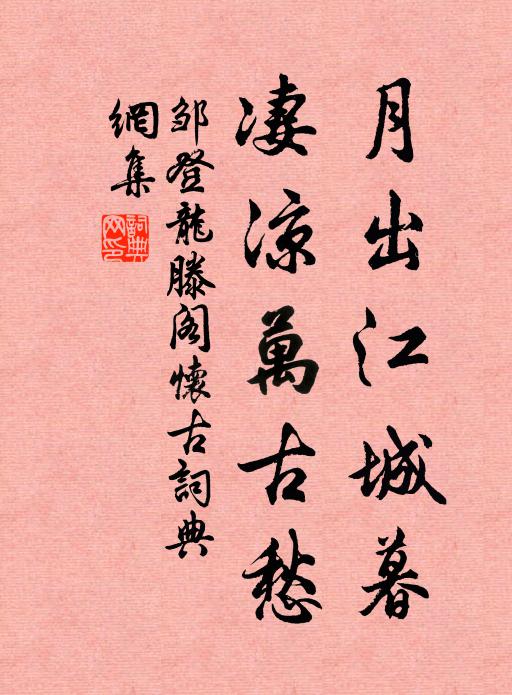 月出江城暮
凄涼萬古愁
邹登龍滕阁懷古詞典
網集
詞典
网印